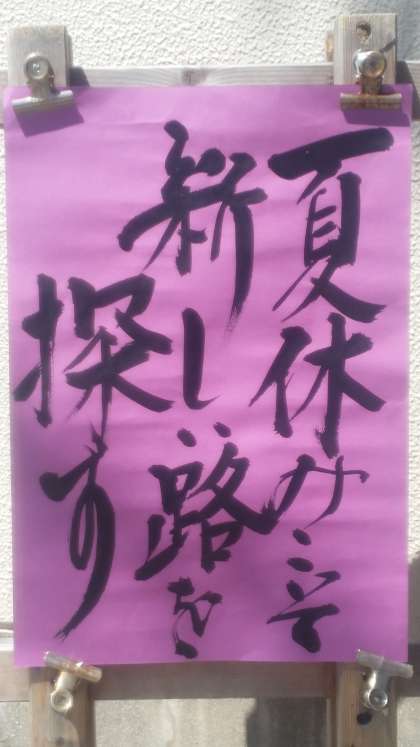 夏休みこそ
新しい路を
探す